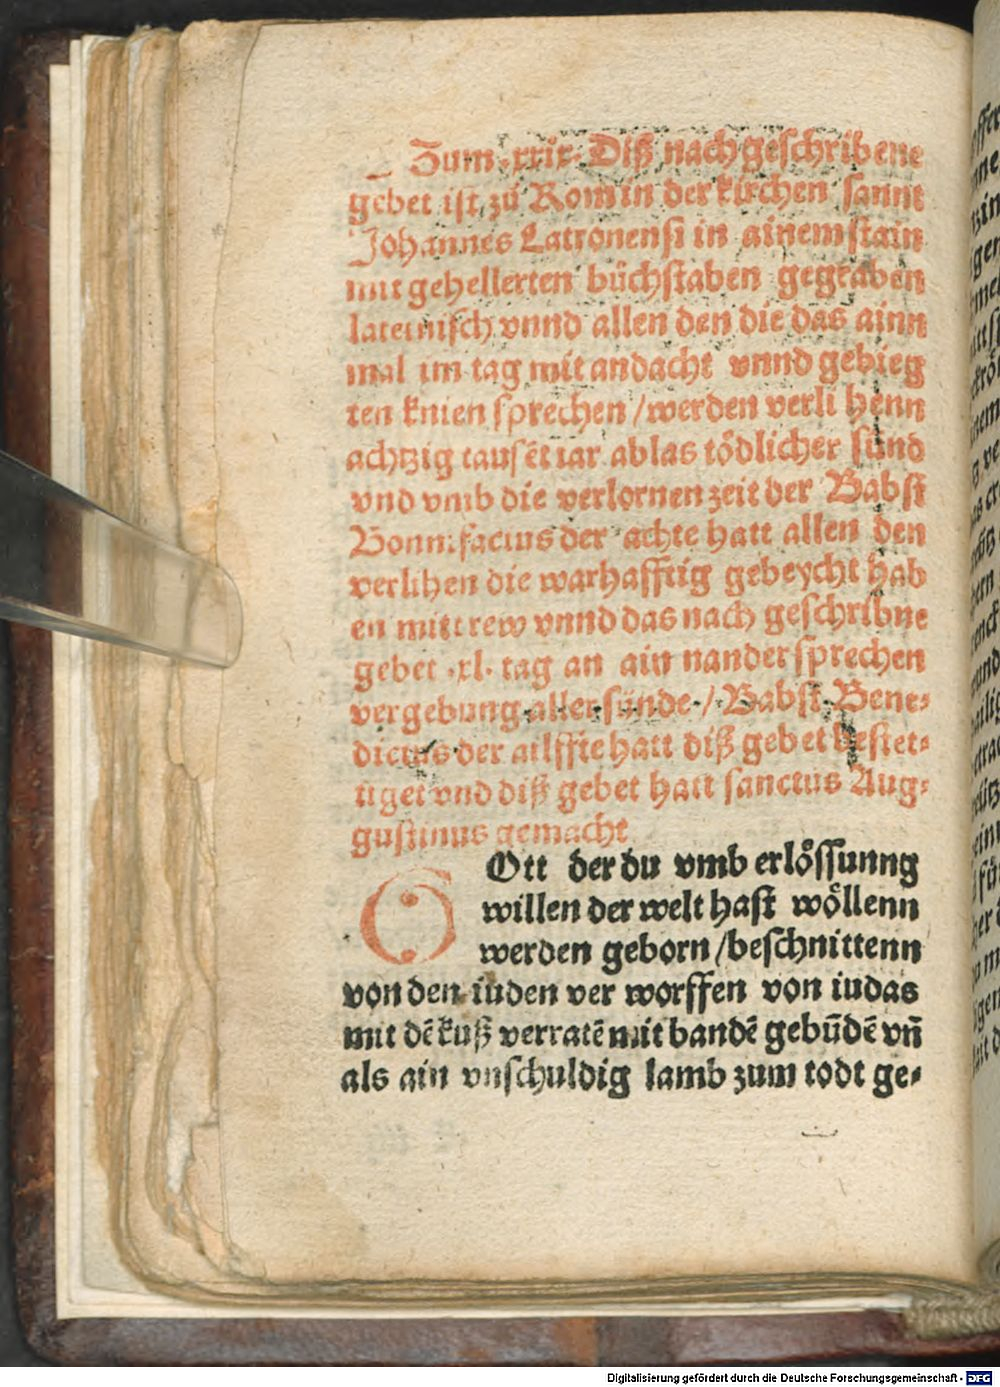 Zum .xxix. Diß nachgeschribene
gebet ist zů Rom in der kirchen sannt
Johannes Latronensi in ainem stain
mit gehellerten bůchstaben gegraben
lateinisch vnnd allen den die das ainn
mal im tag mit andacht vnnd gebieg
ten knien sprechen / werden verli henn
achtzig tausẽt iar ablas tödlicher sünd
vnd vmb die verlornen zeit der Babst
Bonnifacius der achte hatt allen den
verlihen die warhafftig gebeycht hab
en mitt rew vnnd das nach geschribne
gebet .xl. tag an ain nander sprechen
vergebung aller sünde / Babst Bene⸗
dictus der ailffte hatt diß gebet bestet⸗
tiget vnd diß gebet hatt sanctus Aug⸗
gustinus gemacht
O Ott der du vmb erlössunng
willen der welt hast wöllenn
werden geborn / beschnittenn
von den iuden ver worffen von iudas
mit dẽ kuß verratẽ mit bandẽ gebũdẽ vñ
als ain vnschuldig lamb zum todt ge⸗
Digitalisierung gefördert durch die Deutsche Forschungsgemeinschaft - DFG